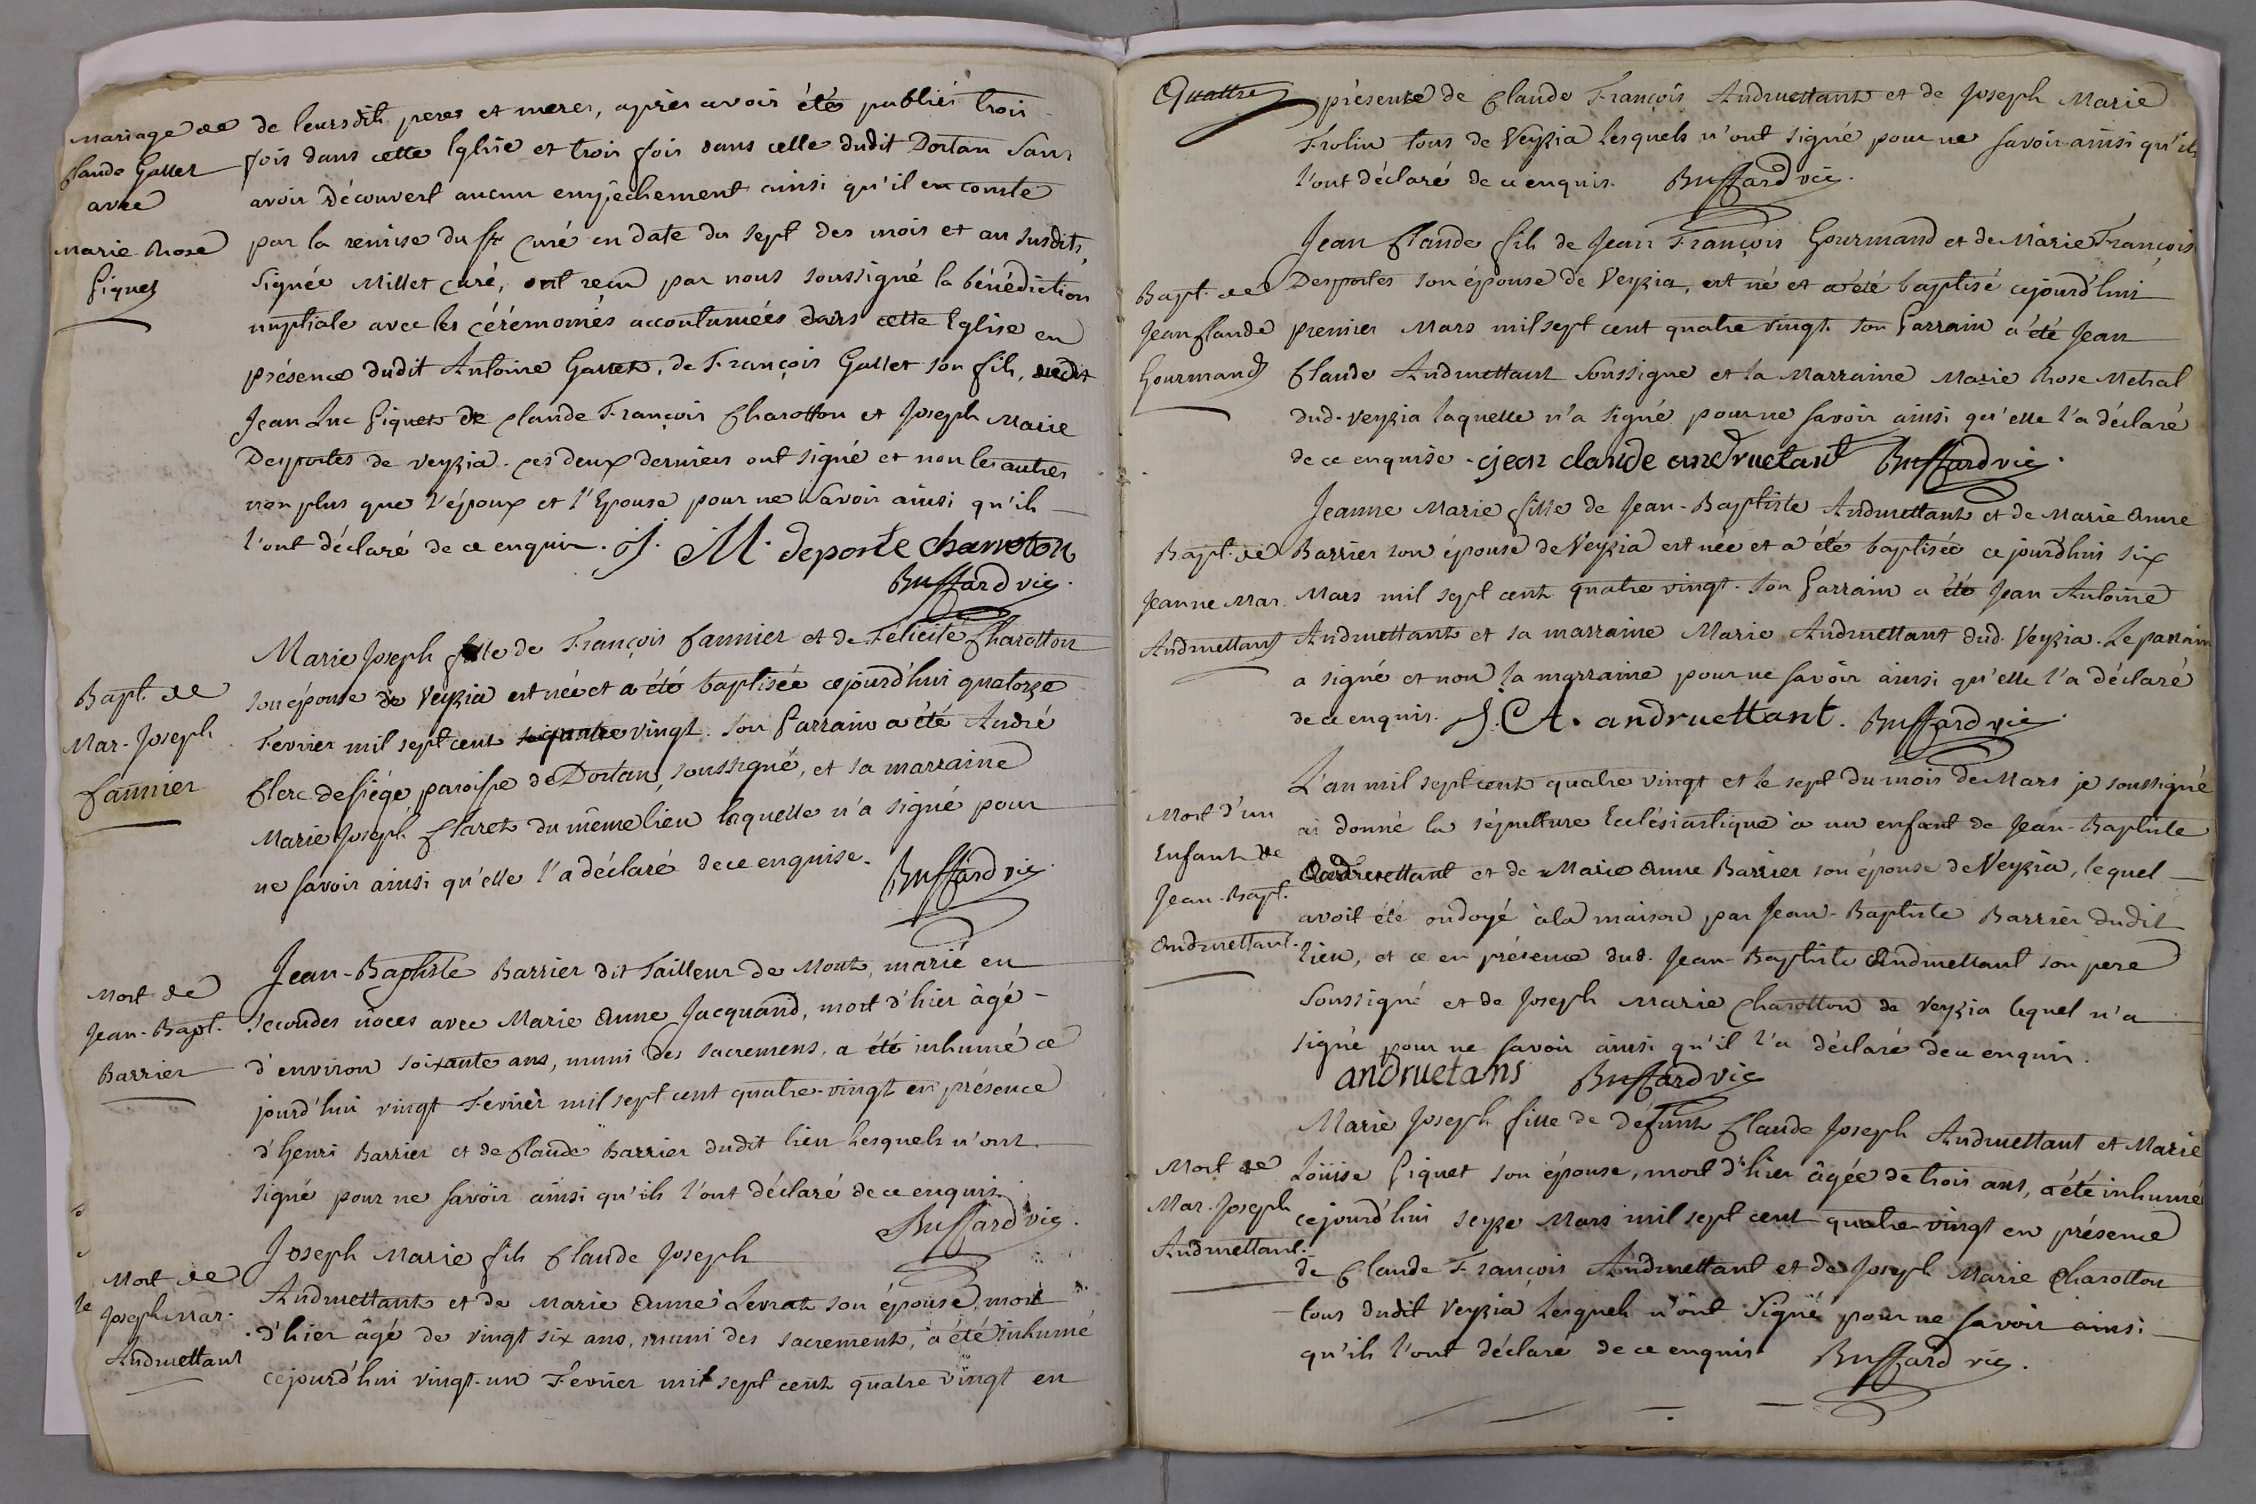 mariage de
Claude Gallet
avec
Marie Rose
Piquet
de leursdits peres et meres, après avoir été publiés trois
fois dans cette Eglise et trois fois dans celle dudit Dortan Sans
avoir découvert aucun empêchement ainsi qu'il en conste
par la remise du Sr Curé en date du sept des mois et an susdits,
signée Millet curé, ont reçu par nous soussigné la bénédiction
nuptiale avec les cérémonies accoutumées dans cette Eglise en
présence dudit Antoine Gallet, de François Gallet son fils, dudit
Jean Luc Piquet de Claude François Charotton et Joseph Marie
Desportes de veyzia. ces deux derniers ont signé et non les autres
non plus que l'époux et l'Epouse pour ne Savoir ainsi qu'ils
l'ont déclaré de ce enquis. J. M. deporte charroton
Buffard vic.
Bapt. de
Mar-Joseph
Cannier
Marie Joseph fille de François Cannier et de Félicité Charotton
son épouse de Veyzia est née et a été baptisée cejourd'hui quatorze
Fevrier mil sept cent quatre vingt. Son Parrain a été André
Clerc de siége, paroisse de Dortan, soussigné, et sa marraine
Marie Joseph Claret du même lieu laquelle n'a signé pour
ne savoir ainsi qu'elle l'a déclaré de ce enquise. Buffard vic.
Mort de
Jean-Bapt.
Barrier
Jean-Baptiste Barrier dit Tailleur de Mont, marié en
secondes nôces avec Marie Anne Jacquand, mort d'hier âgé
d'environ soixante ans, muni des sacremens, a été inhumé ce
jourd'hui vingt Fevrier mil sept cent quatre-vingt en présence
d'henri Barrier et de Claude Barrier dudit lieu Lesquels n'ont
signé pour ne savoir ainsi qu'ils l'ont déclaré de ce enquis.
Buffard vic.
Mort de
Joseph Mar.
Andruettant
Joseph Marie fils Claude Joseph
Andruettant et de Marie Anne Levrat son épouse, mort
d'hier âgé de vingt six ans, muni des sacrements, a été inhumé
cejourd'hui vingt-un Février mil sept cent quatre vingt en
Quattre
présence de Claude François Andruettant et de Joseph Marie
Frolin tous de Veyzia Lesquels n'ont signé pour ne savoir ainsi qu'ils
l'ont déclaré de ce enquis. Buffard vic.
Bapt. de
Jean Claude
Gourmand
Jean Claude fils de Jean François Gourmand et de Marie François
Desportes son épouse de Veyzia, est né et a été baptisé cejourd'hui
premier Mars mil sept cent quatre vingt. son Parrain a été Jean
Claude Andruettant Soussigné et la Marraine Marie Rose Metral
dud. veyzia laquelle n'a signé pour ne savoir ainsi qu'elle l'a déclaré
de ce enquise. jean claude andruetant Buffard vic.
Bapt. de
Jeanne Mar.
Andruettant
Jeanne Marie fille de Jean-Baptiste Andruettant et de Marie Anne
Barrier son épouse de Veyzia est née et a été baptisée ce jourd'hui six
Mars mil sept cent quatre vingt. Son Parrain a été Jean Antoine
Andruettant et sa marraine Marie Andruettant dud. Veyzia. Le parrain
a signé et non la marraine pour ne savoir ainsi qu'elle l'a déclaré
de ce enquis. J. A. andruettant. Buffard vic.
Mort d'un
Enfant de
Jean-Bapt.
Andruettant.
L'an mil sept cent quatre vingt et le sept du mois de Mars je soussigné
ai donné la sépulture Ecclésiastique à un enfant de Jean-Baptiste
Andruettant et de Marie Anne Barrier son épouse de Veyzia, lequel
avoit été ondoyé à la maison par Jean-Baptiste Barrier dudit
lieu, et ce en présence dud. Jean-Baptiste Andruettant son pere
Soussigné et de Joseph Marie Charotton de veyzia lequel n'a
signé pour ne savoir ainsi qu'il l'a déclaré de ce enquis.
andruetans Buffard vic
Mort de
Mar. Joseph
Andruettant.
Marie Joseph fille de défunt Claude Joseph Andruettant et Marie
Loüise Piquet son épouse, mort d'hier âgée de trois ans, a été inhumé
cejourd'hui seize Mars mil sept cent quatre-vingt en présence
de Claude François Andruettant et de Joseph Marie Charotton
tous dudit Veyzia Lesquels n'ont Signé pour ne savoir ainsi
qu'ils l'ont déclaré de ce enquis Buffard vic.